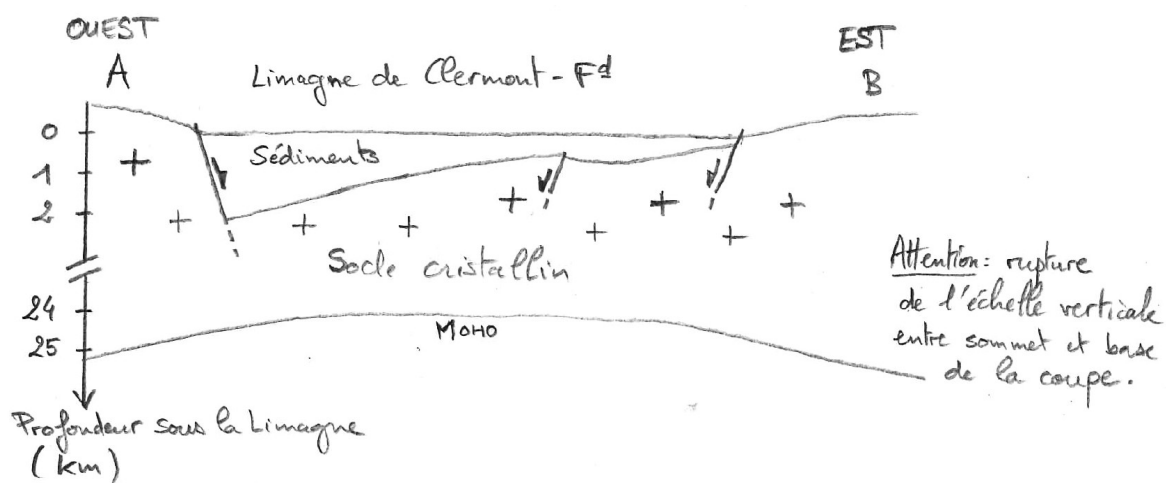 OUEST
A
EST
B
Limagne de Clermont-Fd
0
1
2
24
25
Sédiments
Socle cristallin
MOHO
Attention: rupture
de l'échelle verticale
entre sommet et base
de la coupe.
Profondeur sous la Limagne
(km)